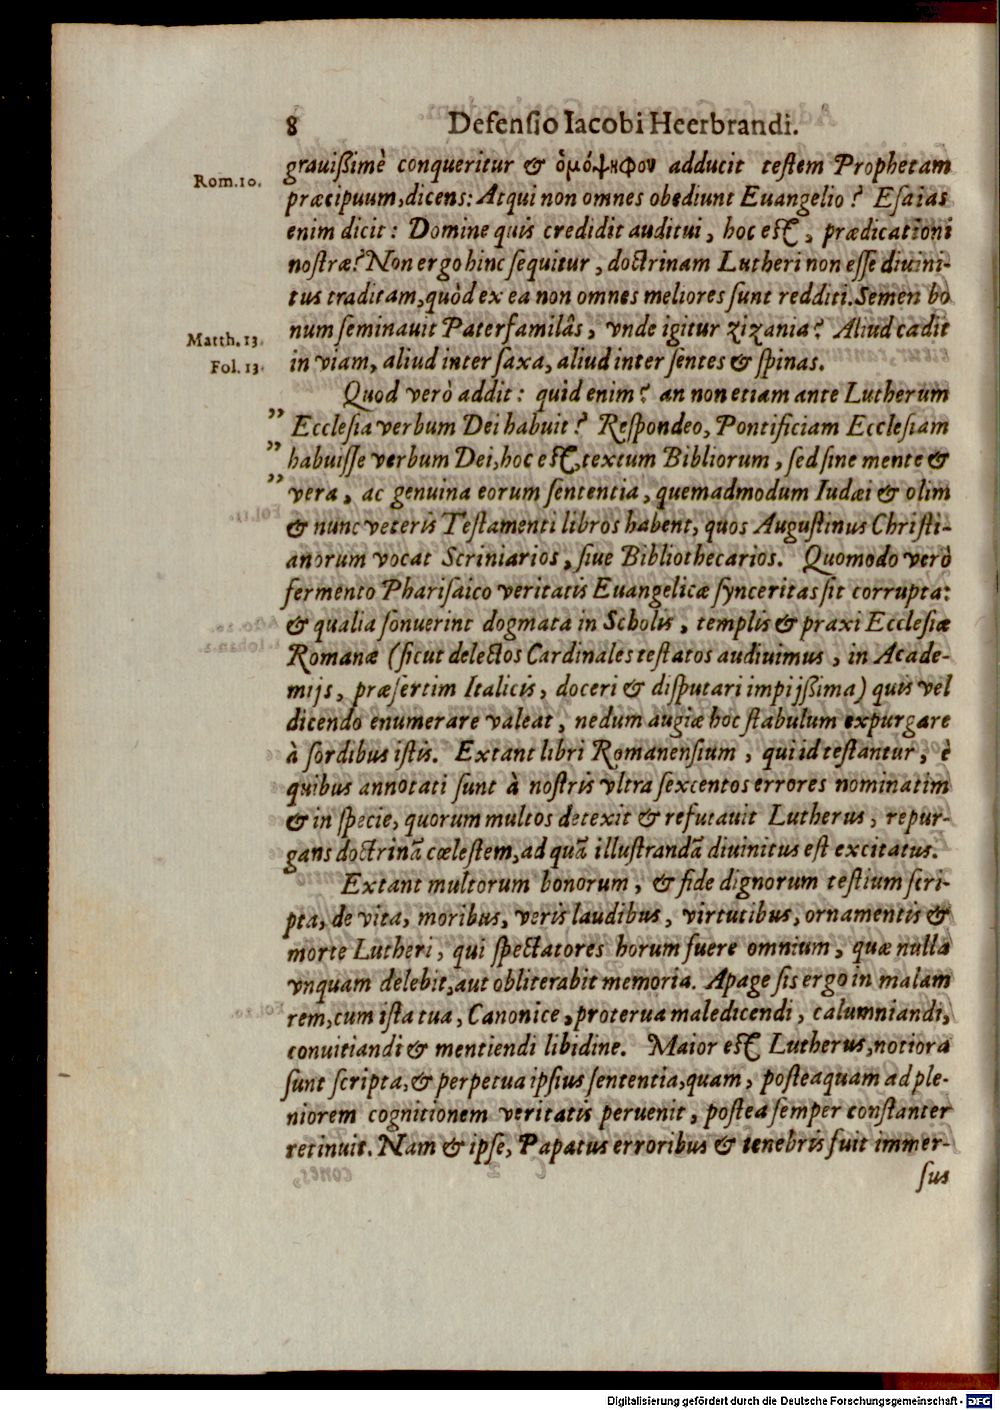 8 Defensio Iacobi Heerbrandi.
grauißimè conqueritur & ὁμόψηφον adducit testem Prophetam
Rom.10.
præcipuum, dicens: Atqui non omnes obediunt Euangelio? Esaias
enim dicit: Domine quis credidit auditui, hoc est, prædicationi
nostræ? Non ergo hinc sequitur, doctrinam Lutheri non esse diuini-
tus traditam, quòd ex ea non omnes meliores sunt redditi. Semen bo
num seminauit Paterfamiliâs, vnde igitur zizania? Aliud cadit
Matth.13.
in viam, aliud inter saxa, aliud inter sentes & spinas.
Fol.13.
Quod verò addit: quid enim? an non etiam ante Lutherum
„ Ecclesia verbum Dei habuit? Respondeo, Pontificiam Ecclesiam
„ habuisse verbum Dei, hoc est, textum Bibliorum, sed sine mente &
„ vera, ac genuina eorum sententia, quemadmodum Iudæi & olim
& nunc veteris Testamenti libros habent, quos Augustinus Christi-
anorum vocat Scriniarios, siue Bibliothecarios. Quomodo verò
fermento Pharisaico veritatis Euangelicæ synceritas sit corrupta:
& qualia sonuerint dogmata in Scholis, templis & praxi Ecclesiæ
Romanæ (sicut delectos Cardinales testatos audiuimus, in Acade-
mijs, præsertim Italicis, doceri & disputari impijßima) quis vel
dicendo enumerare valeat, nedum augiæ hoc stabulum expurgare
à sordibus istis. Extant libri Romanensium, qui id testantur, è
quibus annotati sunt à nostris vltra sexcentos errores nominatim
& in specie, quorum multos detexit & refutauit Lutherus, repur-
gans doctrinã cœlestem, ad quã illustrandã diuinitus est excitatus.
Extant multorum bonorum, & fide dignorum testium scri-
pta, de vita, moribus, veris laudibus, virtutibus, ornamentis &
morte Lutheri, qui spectatores horum fuere omnium, quæ nulla
vnquam delebit, aut obliterabit memoria. Apage sis ergo in malam
rem, cum ista tua, Canonice, proterua maledicendi, calumniandi,
conuitiandi & mentiendi libidine. Maior est Lutherus, notiora
sunt scripta, & perpetua ipsius sententia, quam, posteaquam ad ple-
niorem cognitionem veritatis peruenit, postea semper constanter
retinuit. Nam & ipse, Papatus erroribus & tenebris fuit immer-
sus
Digitalisierung gefördert durch die Deutsche Forschungsgemeinschaft - DFG